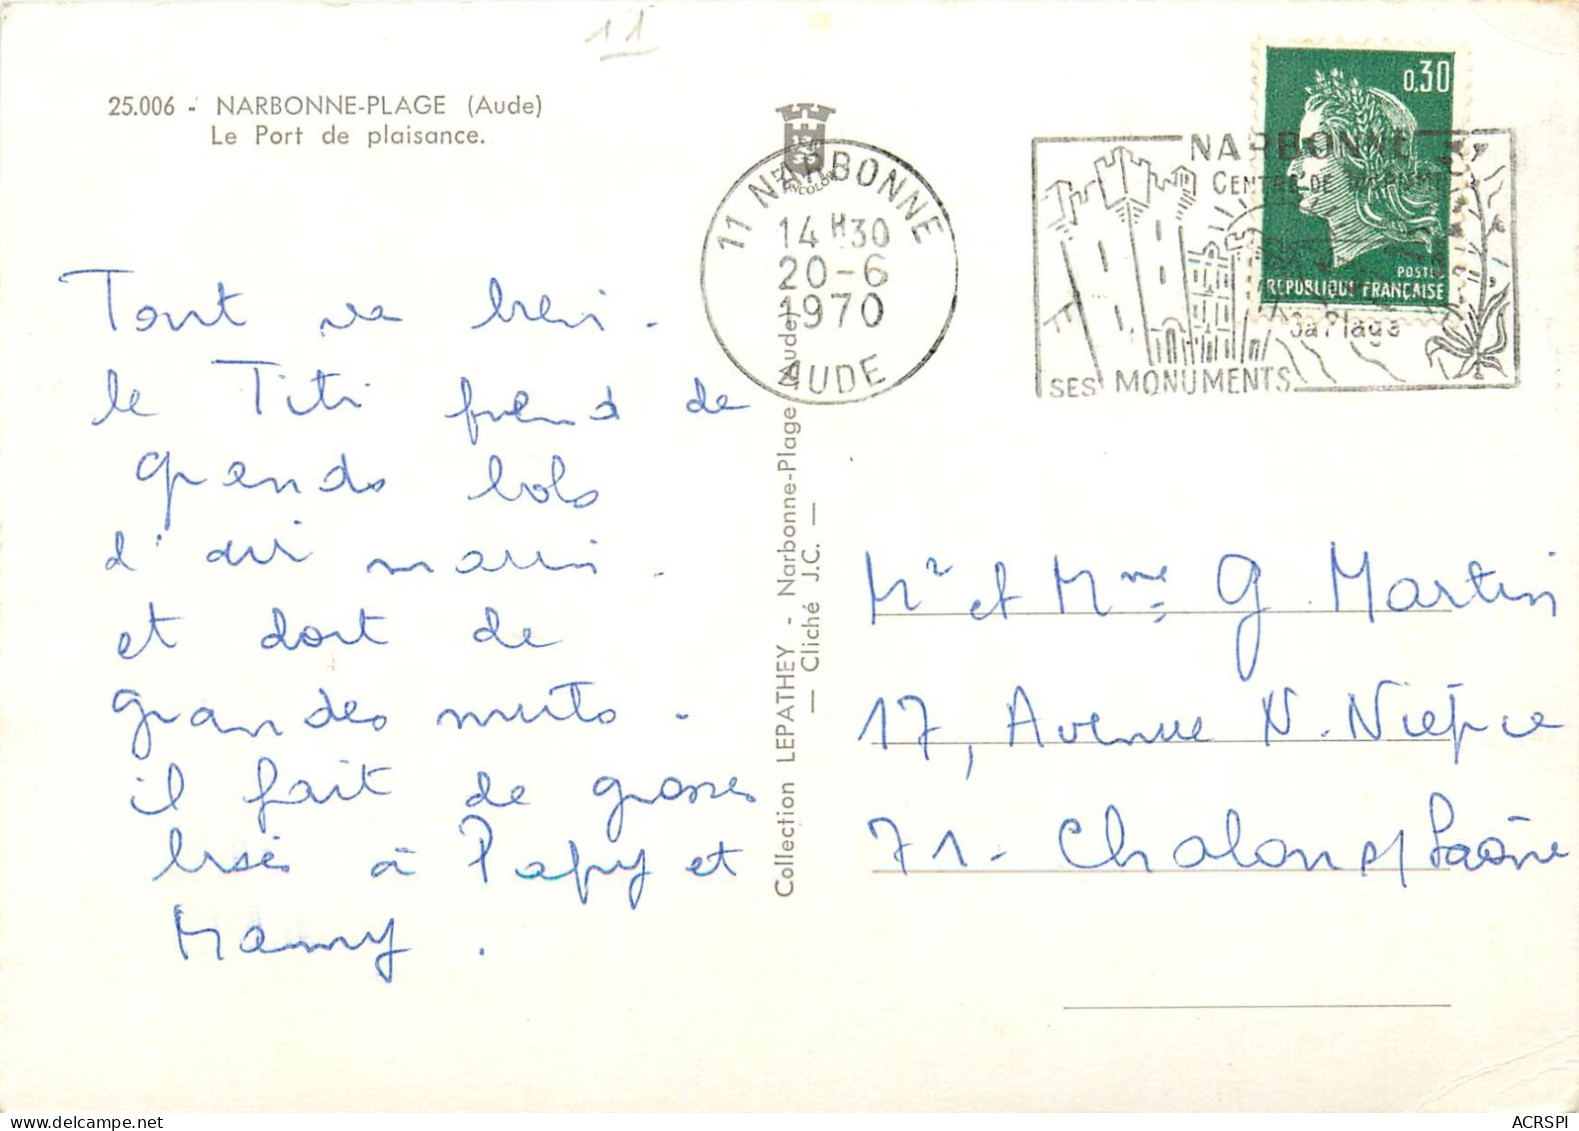 11
25.006 - NARBONNE-PLAGE (Aude)
Le Port de plaisance.
Tout va bien.
le Titi prend de
grands bols
d'air marin.
et dort de
grandes nuits.
il fait de grosses
bises à Papy et
Mamy.
Collection LEPATHEY - Narbonne-Plage (Aude)
— Cliché J.C. —
11 NARBONNE
14 H 30
20-6
1970
AUDE
NARBONNE
CENTRE DE TOURISME
SES MONUMENTS
Sa Plage
0,30
POSTES
REPUBLIQUE FRANÇAISE
Mr et Mme G Martin
17, Avenue N. Niepce
71 - Chalon s/ Saône
ACRSPI